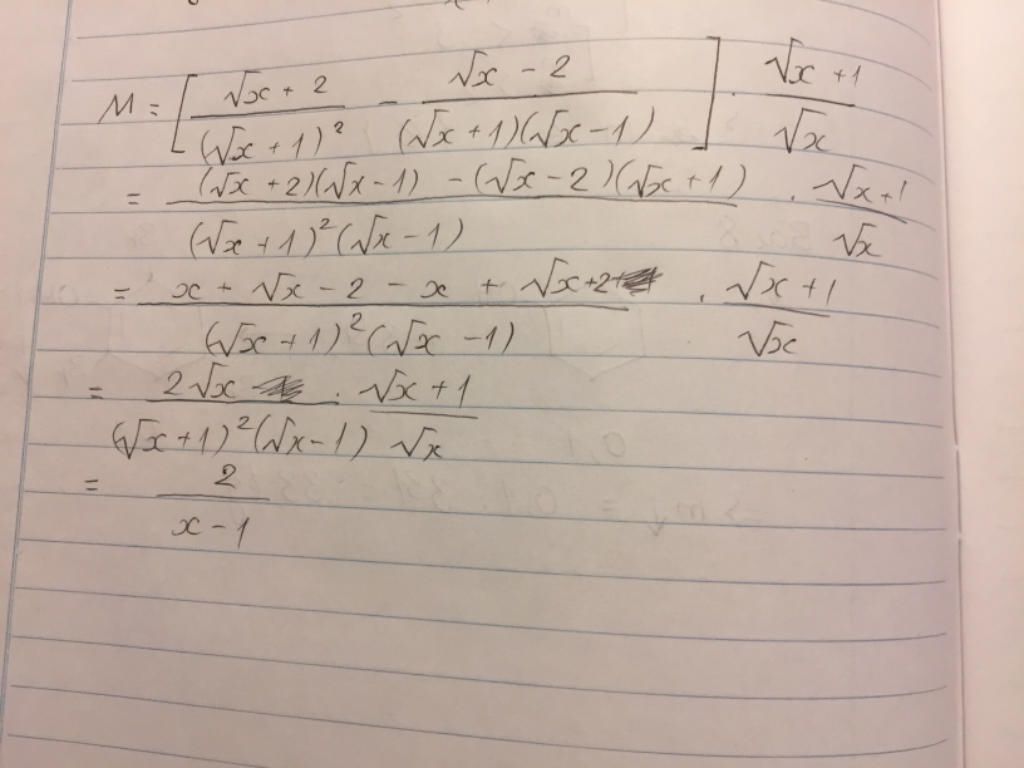 M = [ (√x + 2)/(√x + 1)² - (√x - 2)/((√x + 1)(√x - 1)) ] . (√x + 1)/√x
= ((√x + 2)(√x - 1) - (√x - 2)(√x + 1))/((√x + 1)²(√x - 1)) . (√x + 1)/√x
= (x + √x - 2 - x + √x + 2)/((√x + 1)²(√x - 1)) . (√x + 1)/√x
= 2√x/((√x + 1)²(√x - 1)) . (√x + 1)/√x
= 2/(x - 1)